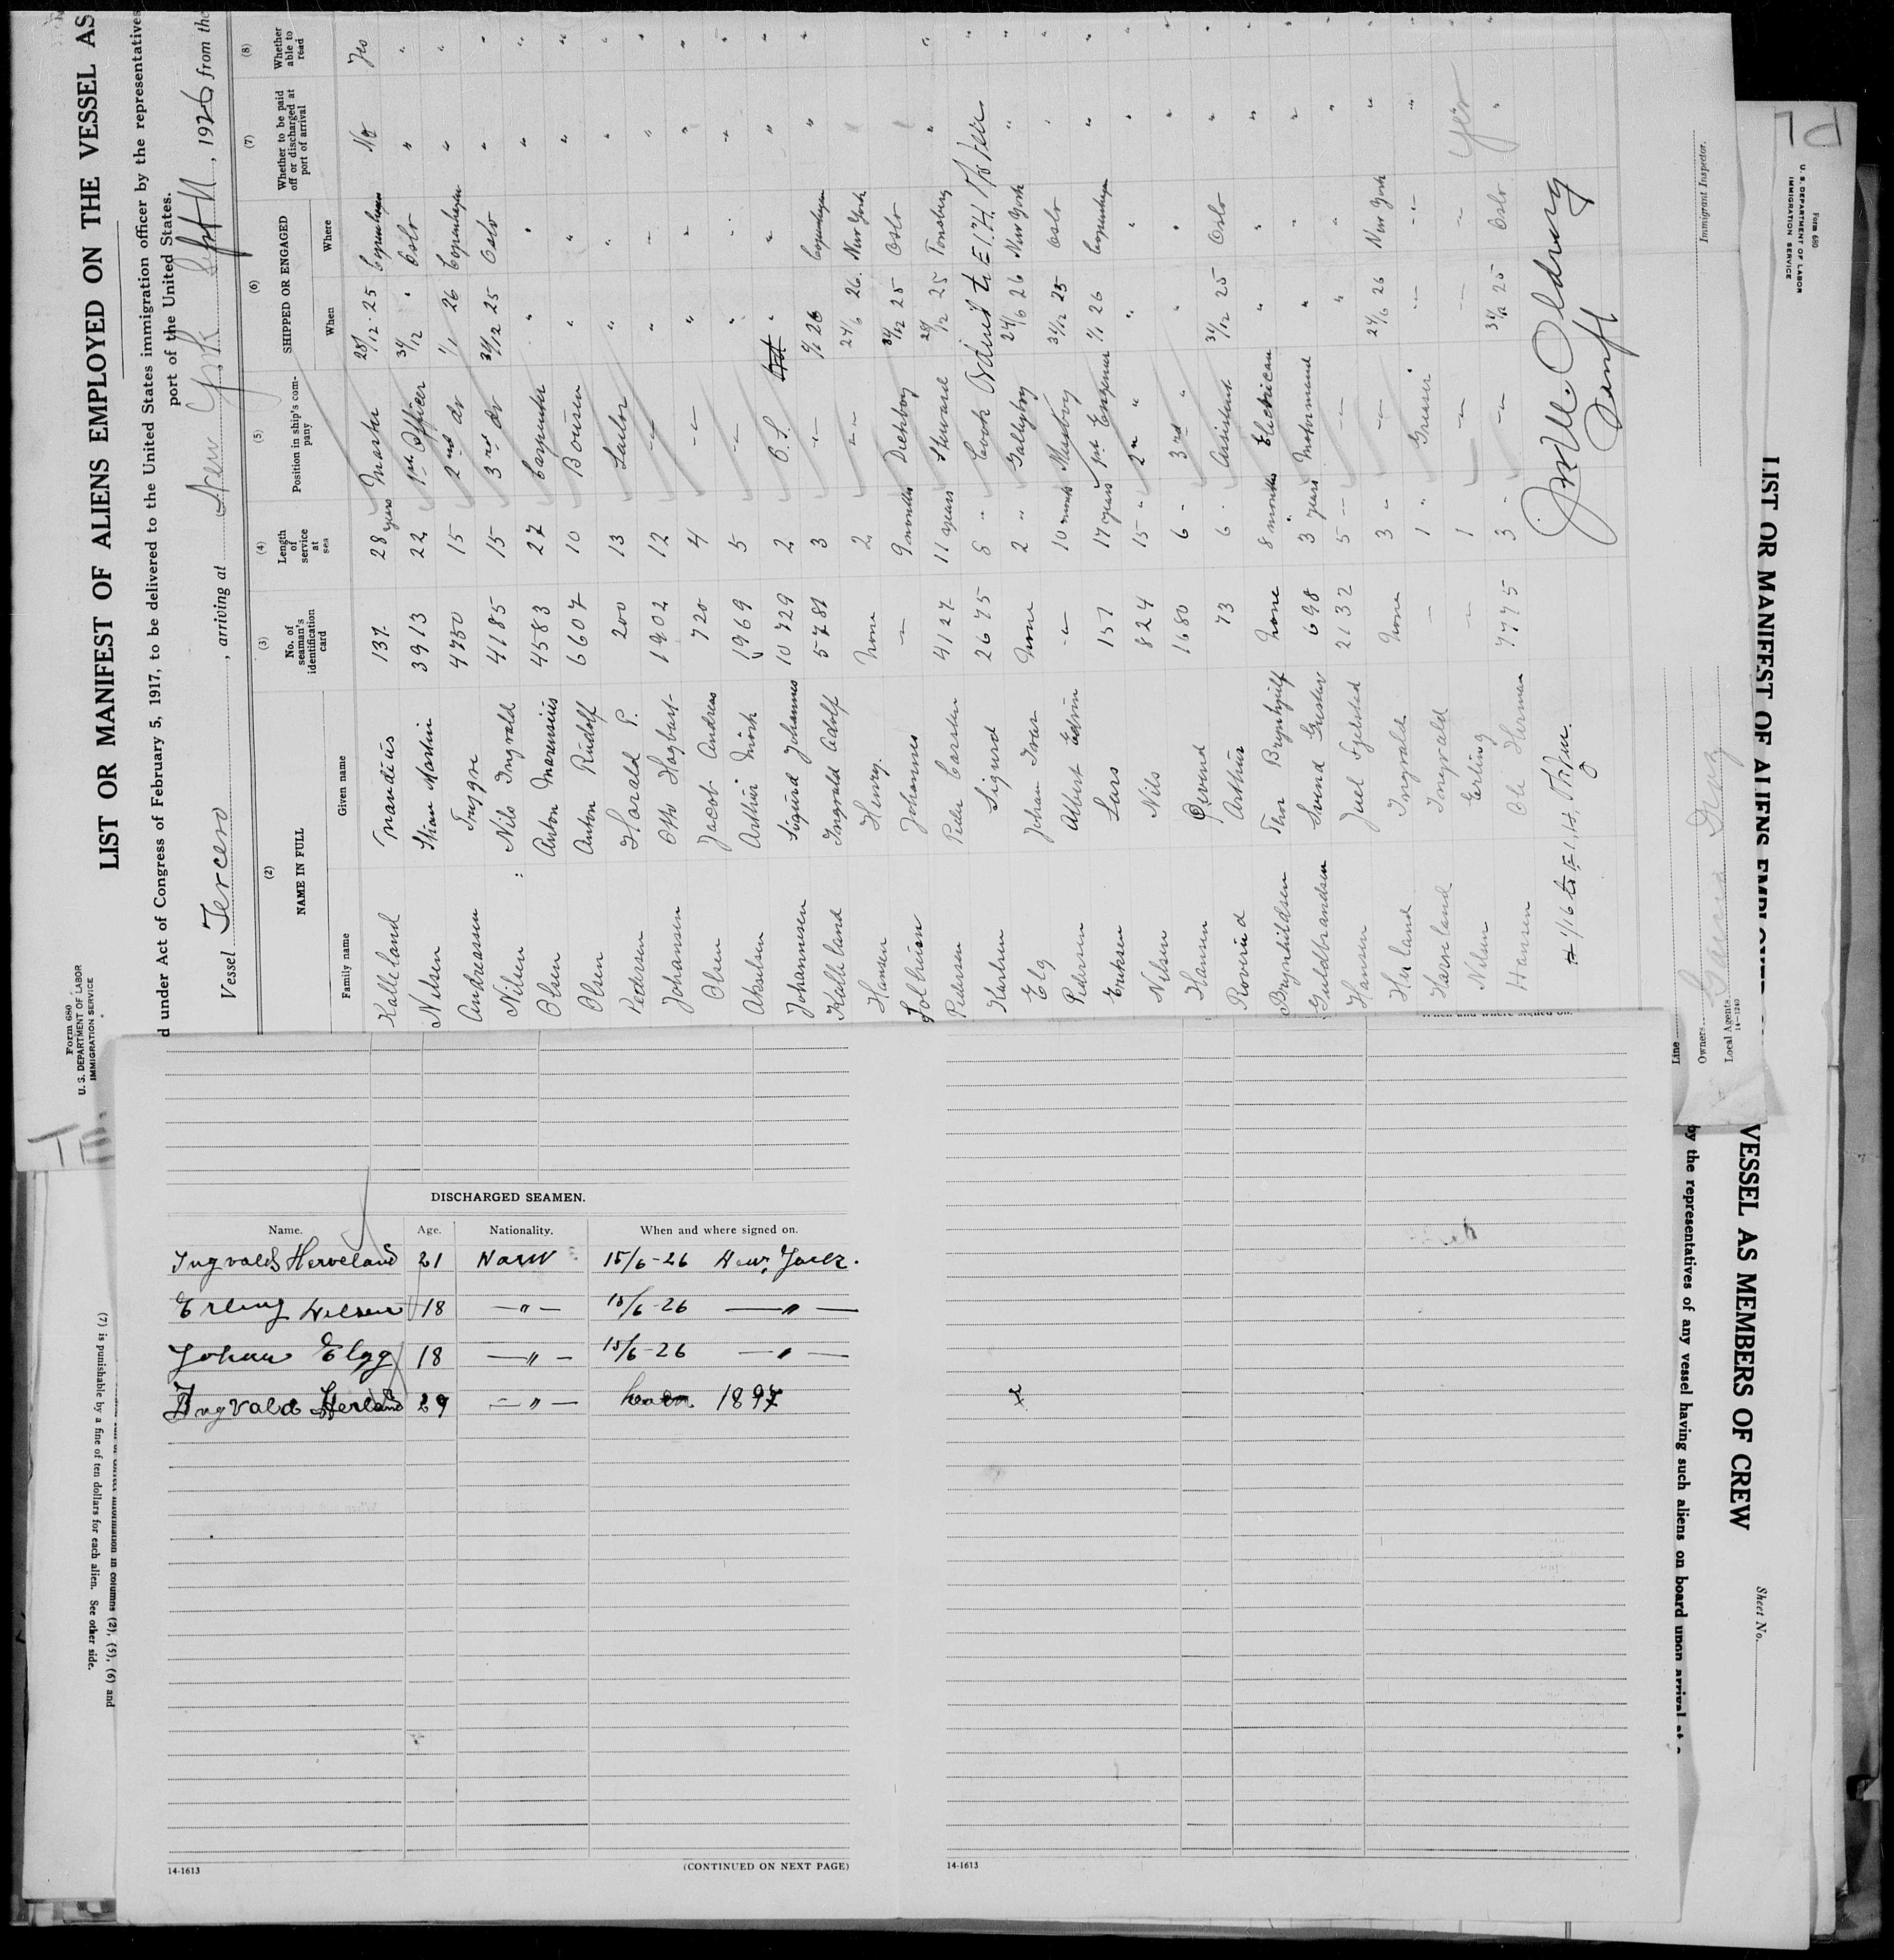 Form 680
U. S. DEPARTMENT OF LABOR
IMMIGRATION SERVICE
LIST OR MANIFEST OF ALIENS EMPLOYED ON THE VESSEL AS
d under Act of Congress of February 5, 1917, to be delivered to the United States immigration officer by the representatives
port of the United States.
Vessel Tercero, arriving at New York Sept 11, 1926 from the
(2) (3) (4) (5) (6) (7) (8)
NAME IN FULL
Family name Given name
No. of seaman's identification card
Length of service at sea
Position in ship's company
SHIPPED OR ENGAGED
When Where
Whether to be paid off or discharged at port of arrival
Whether able to read
Kalleland Mandius 137 28 years Master 28/12 25 Copenhagen No Yes
Nilsen Martin 3913 22 1st Officer 31/12 " Oslo " "
Andreassen Tryggve 4750 15 2nd do 1/1 26 Copenhagen " "
Nilsen Nils Ingvald 4185 15 3rd do 30/12 25 Oslo " "
Olsen Anton Marensius 4583 27 Carpenter " " " "
Olsen Anton Rudolf 6607 10 " " " "
Pedersen Harald P. 200 13 Sailor " " " "
Johansen Otto Hagbart 1902 12 -"- " " " "
Olsen Jacob Andreas 720 4 -"- " " " "
Akselsen Arthur 1969 5 -"- " " " "
Johannesen Sigurd Johannes 10729 2 O.S. " " " "
Kalleland Ingvald Adolf 5781 3 -"- 6/1 26 Copenhagen " "
Hansen Henry. None 2 -"- 24/6 26. New York
Johannes -"- 9 months Deckboy 31/12 25 Oslo
Pedersen Peder Carsten 4127 11 years Steward 28/12 25 Tonsberg " "
Sigurd 2675 8 " Cook Admit
Elg Johan Ivar None 2 " Galleyboy 24/6 26 New York " "
Pedersen Albert Edvin -"- 10 months Messboy 31/12 25 Oslo " "
Eriksen Lars 157 17 years 1st Engineer 1/1 26 Copenhagen " "
Nilsen Nils 824 15 " 2nd " " " " "
Hansen Øivind 1680 6 " 3rd " " " " "
Arthur 73 6 " Assistent 31/12 25 Oslo " "
Brynhildsen Thor Brynhjulf None 8 months Electrician " " " "
Guldbrandsen Svend Gustav 698 3 years Motormand " " " "
Hansen Juel Fjelstad 2132 5 -"- -"- " " " "
Herland Ingvald None 3 " -"- 24/6 26 New York " "
Ingvald -"- 1 " Greaser -"- -"- "
Nilsen Erling -"- 1 -"- -"- -"- Yes
Hansen Ole Herman 7775 3 " -"- 31/12 25 Oslo " "
Immigrant Inspector.
Line
Owners
Local Agents
14-1240
DISCHARGED SEAMEN.
Name. Age. Nationality. When and where signed on.
Ingvald Herveland 21 Norw 15/6-26 New York.
Erling Nelsen 18 -"- 15/6-26 -"-
Johan Elgg 18 -"- 15/6-26 -"-
Ingvald Herland 29 -"- born 1897
x
14-1613 (CONTINUED ON NEXT PAGE)
14-1613
(7) is punishable by a fine of ten dollars for each alien. See other side.
columns (2), (5), (6) and
Form 680
U. S. DEPARTMENT OF LABOR
IMMIGRATION SERVICE
LIST OR MANIFEST OF ALIENS
VESSEL AS MEMBERS OF CREW
Sheet No.
by the representatives of any vessel having such aliens on board upon arrival at a